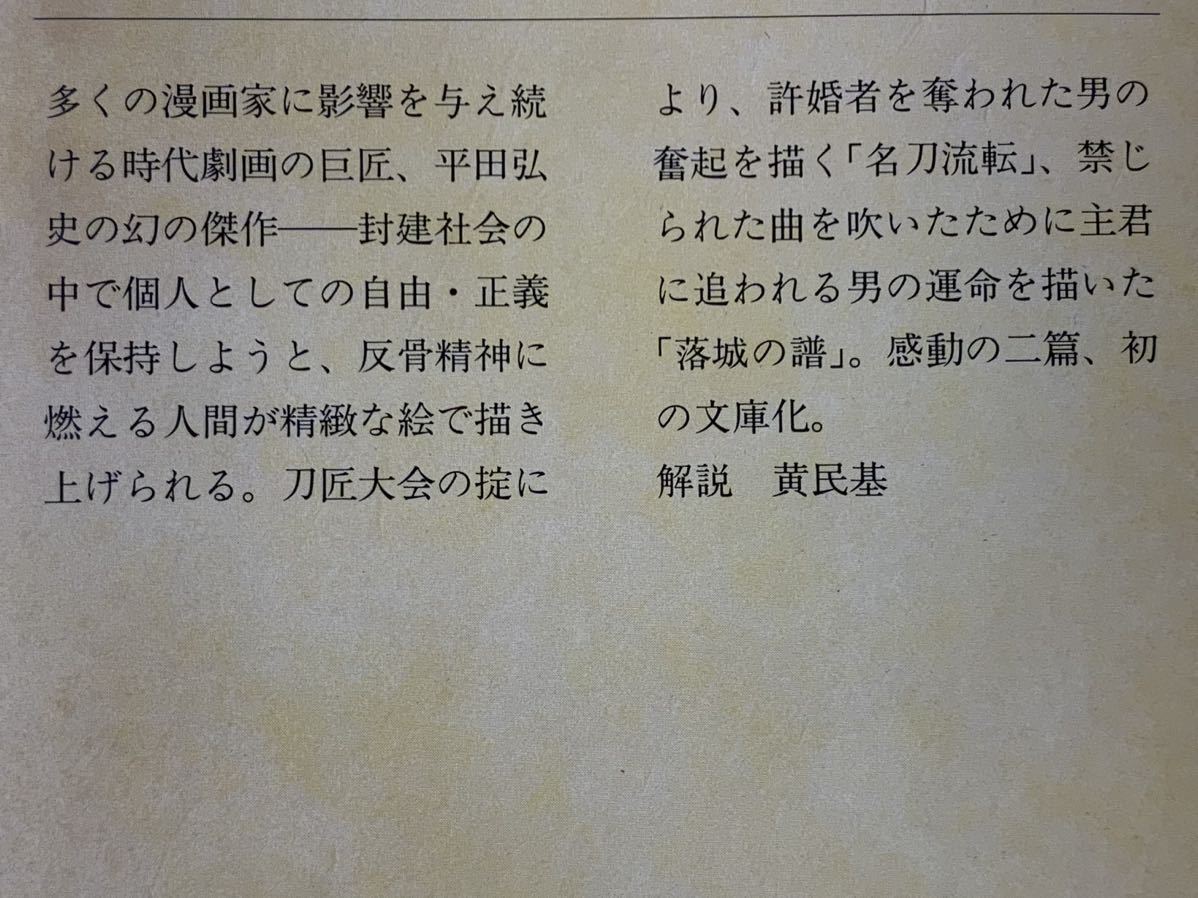 多くの漫画家に影響を与え続
ける時代劇画の巨匠、平田弘
史の幻の傑作――封建社会の
中で個人としての自由・正義
を保持しようと、反骨精神に
燃える人間が精緻な絵で描き
上げられる。刀匠大会の掟に
より、許婚者を奪われた男の
奮起を描く「名刀流転」、禁じ
られた曲を吹いたために主君
に追われる男の運命を描いた
「落城の譜」。感動の二篇、初
の文庫化。
解説　黄民基